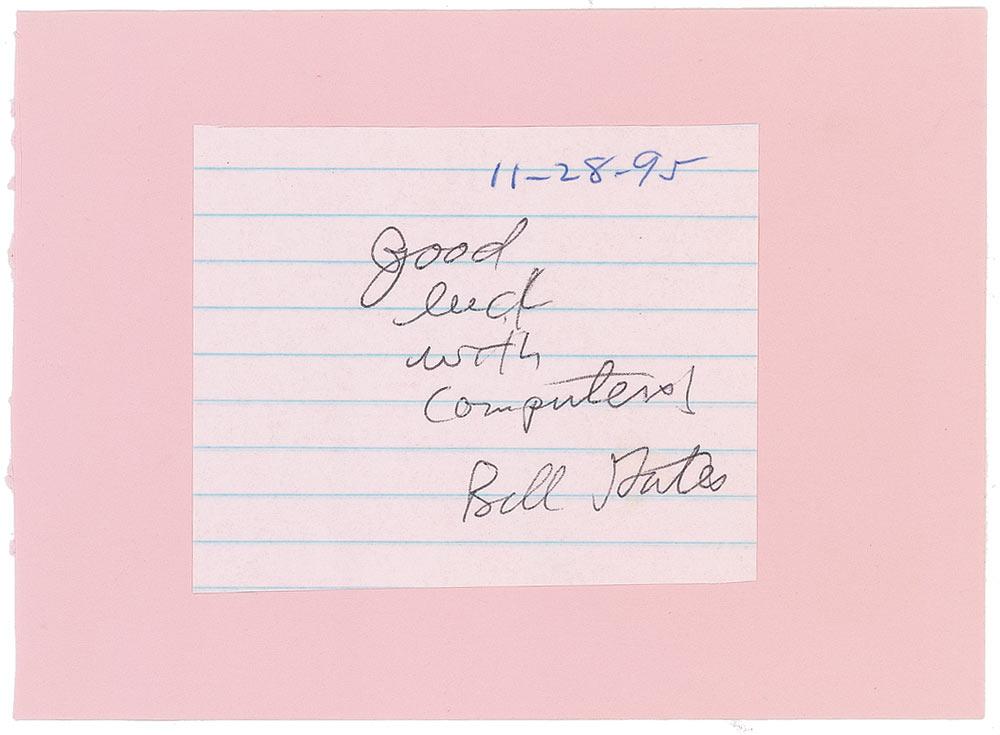 11-28-95
Good
luck
with
computers!
Bill Gates